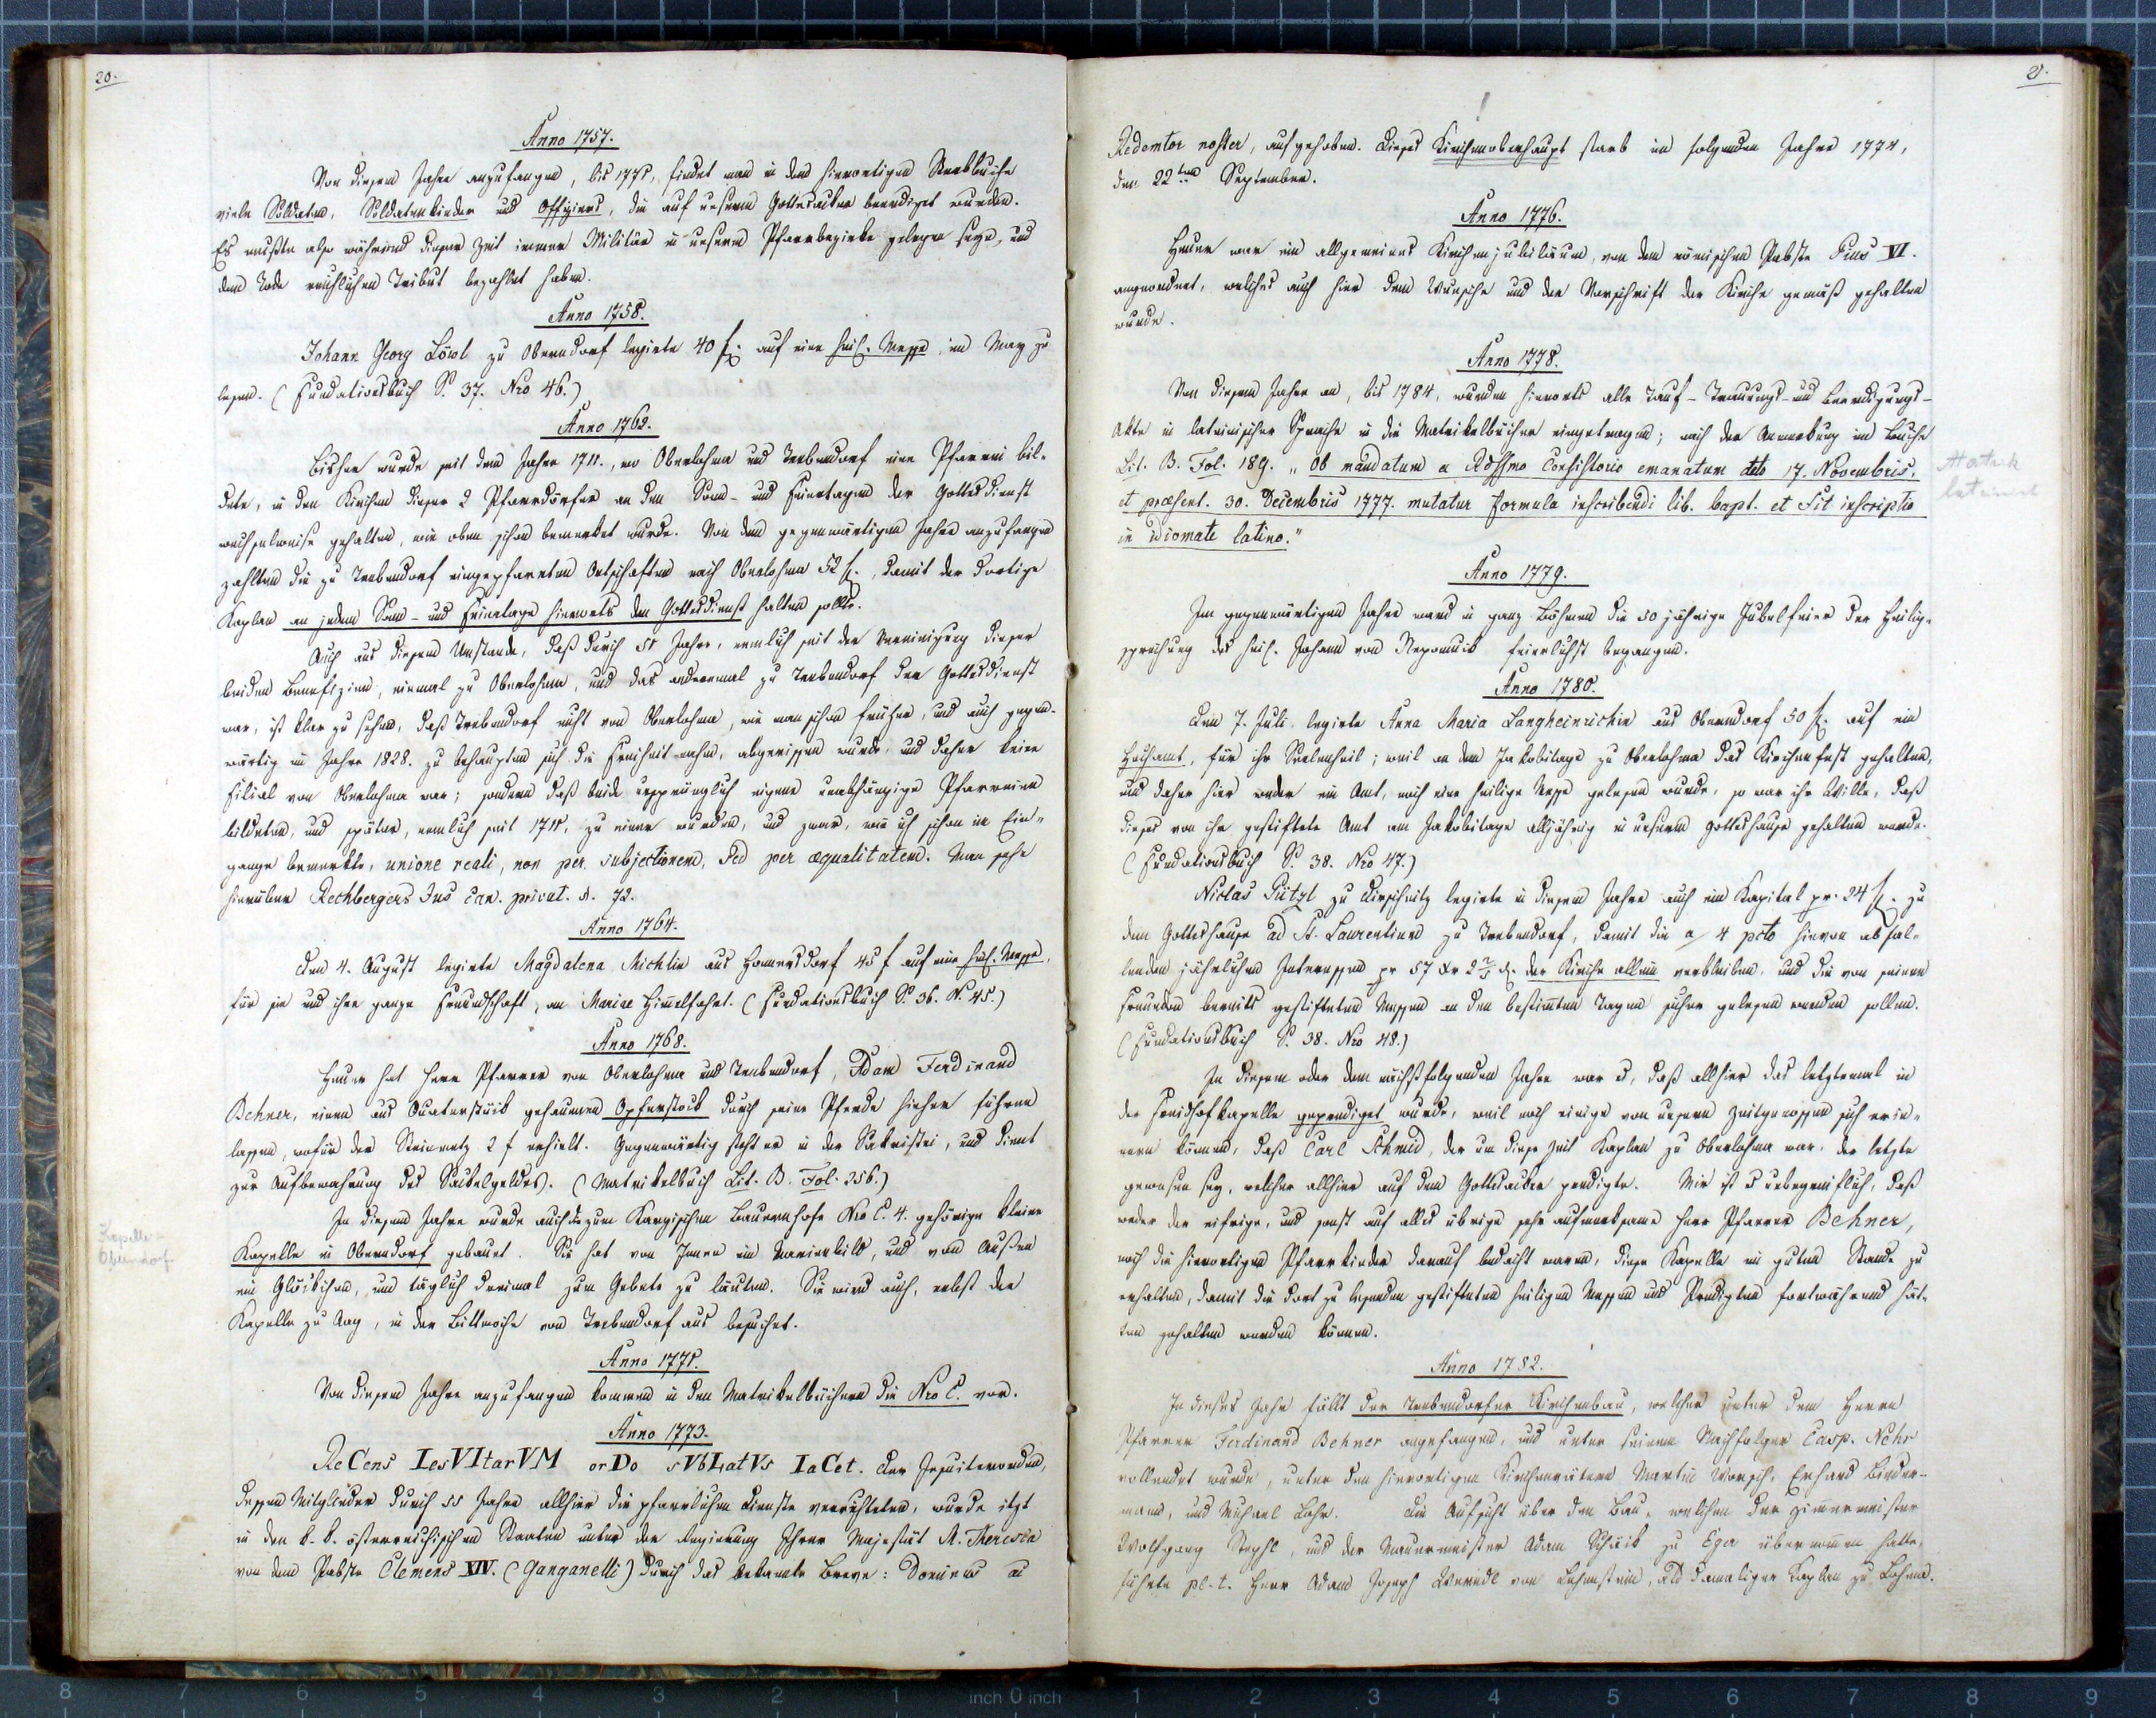 20.
Anno 1757.
Von diesem Jahre anzufangen, bis 1771, findet man in dem hierortigen Sterbbuche
viele Soldaten, Soldatenkinder und Offiziers, die auf unserm Gottesacker beerdiget wurden.
Es mußte also während dieser Zeit immer Militär in unserm Pfarrbezirke gelegen seyn, und
dem Tode reichlichen Tribut bezahlet haben.
Anno 1758.
Johann Georg Löwl zu Oberndorf legirte 40 f. auf eine heil. Messe, im May zu
lesen. (Fundationsbuch S. 37. Nro 46.)
Anno 1762.
Bisher wurde seit dem Jahre 1711, wo Oberlohma und Trebendorf eine Pfarrei bil-
dete, in den Kirchen dieser 2 Pfarrdörfer an den Sonn- und Feiertagen der Gottesdienst
wechselweise gehalten, wie oben schon bemerket wurde. Von dem gegenwärtigen Jahre anzufangen
zahlten die zu Trebendorf eingepfarrten Ortschaften nach Oberlohma 52 f., damit der dortige
Kaplan an jedem Sonn- und Feiertage hierorts den Gottesdienst halten sollte.
Auch aus diesem Umstande, daß durch 51 Jahre, nemlich seit der Vereinigung dieser
beiden Benefizien, einmal zu Oberlohma, und das anderemal zu Trebendorf der Gottesdienst
war, ist klar zu sehen, daß Trebendorf nicht von Oberlohma, wie man schon früher, und auch gegen-
wärtig im Jahre 1828. zu behaupten sich die Freiheit nahm, abgerissen wurde, und daher keine
Filial von Oberlohma war; sondern daß beide ursprünglich eigene unabhängige Pfarreien
bildeten, und später, nemlich seit 1711, zu einer wurden, und zwar, wie ich schon im Ein-
gange bemerkte, unione reali, non per subjectionem, sed per æqualitatem. Man sehe
hierüber Rechbergers Jus can. privat. §. 72.
Anno 1764.
Den 4. August legirte Magdalena Michlin aus Homersdorf 45 f auf eine heil. Messe,
für sie und ihre ganze Freundschaft, an Mariae Himmelfahrt. (Fundationsbuch S. 36. N. 45.)
Anno 1768.
Heuer hat Herr Pfarrer von Oberlohma und Trebendorf, Adam Ferdinand
Behner, einen aus Quaterstück gehauenen Opferstock durch seine Pferde hieher führen
lassen, wofür der Steinmetz 2 f erhielt. Gegenwärtig steht er in der Sakristei, und dient
zur Aufbewahrung des Säckelgeldes. (Matrikelbuch Lit. B. Fol. 356.)
In diesem Jahre wurde auch die zum Bauernhofe Nro C. 4. gehörige kleine
Kapelle in Oberndorf gebauet. Sie hat von Innen ein Marienbild, und von Außen
ein Glöckchen, um täglich dreimal zum Gebete zu läuten. Sie wird auch, nebst der
Kapelle zu Aag, in der Bittwoche von Trebendorf aus besuchet.
Kapelle
Oberndorf
Anno 1771.
Von diesem Jahre anzufangen kommen in den Matrikelbüchern die Nro C. vor.
Anno 1773.
ReCens IesVItarVM orDo sVbLatVs IaCet. Der Jesuitenorden,
dessen Mitglieder durch 55 Jahre allhier die pfarrlichen Dienste verrichteten, wurde itzt
in den k. k. österreichischen Staaten unter der Regierung Ihrer Majestät M. Theresia
von dem Pabste Clemens XIV. (Ganganelli) durch das bekannte Breve: Dominus ac
21.
Redemtor noster, aufgehoben. Dieses Kirchenoberhaupt starb im folgenden Jahre 1774,
den 22ten September.
Anno 1776.
Heuer war ein allgemeines Kirchenjubiläum, von dem römischen Pabste Pius VI.
angeordnet, welches auch hier dem Wunsche und der Vorschrift der Kirche gemäß gehalten
wurde.
Anno 1778.
Von diesem Jahre an, bis 1784, wurden hierorts alle Tauf- Trauungs- und Beerdigungs-
Akte in lateinischer Sprache in die Matrikelbücher eingetragen; nach der Anmerkung im Buche
Lit. B. Fol. 189. „Ob mandatum a Rdssmo Consistorio emanatum dto 17. Novembris,
et præsent. 30. Decembris 1777. mutatur formula inscribendi lib. bapt. et fit inscriptio
in idiomate latino."
Matrik
lateinisch
Anno 1779.
Im gegenwärtigen Jahre ward in ganz Böhmen die 50 jährige Jubelfeier der Heilig-
sprechung des heil. Johann von Nepomuck feierlichst begangen.
Anno 1780.
Den 7. Juli legirte Anna Maria Langheinrichin aus Oberndorf 50 f. auf ein
Hochamt, für ihr Seelenheil; weil an dem Jakobitage zu Oberlohma das Kirchenfest gehalten,
und daher hier weder ein Amt, noch eine heilige Messe gelesen wurde, so war ihr Wille, daß
dieses von ihr gestiftete Amt am Jakobitage alljährig in unserm Gotteshause gehalten werde.
(Fundationsbuch S. 38. Nro 47.)
Niclas Pützl zu Dirschnitz legirte in diesem Jahre auch ein Kapital pr. 24 f. zu
dem Gotteshause ad St. Laurentium zu Trebendorf, damit die a 4 pcto hievon abfal-
lenden jährlichen Interessen pr 57 xr 2 d. der Kirche allein verbleiben, und die von seinen
Freunden bereits gestifteten Messen an den bestimmten Tagen sicher gelesen werden sollen.
(Fundationsbuch S. 38. Nro 48.)
In diesem oder dem nächstfolgenden Jahre war es, daß allhier das letztemal in
der Freidhofkapelle geprediget wurde, weil noch einige von unsern Zeitgenossen sich erin-
nern können, daß Carl Schmid, der um diese Zeit Kaplan zu Oberlohma war, der letzte
gewesen sey, welcher allhier auf dem Gottesacker predigte. Mir ist es unbegreiflich, daß
weder der eifrige, und sonst auf alles übrige sehr aufmerksame Herr Pfarrer Behner,
noch die hierortigen Pfarrkinder darauf bedacht waren, diese Kapelle in gutem Stande zu
erhalten, damit die dort zu lesenden gestifteten heiligen Messen und Predigten fortwährend hät-
ten gehalten werden können.
Anno 1782.
In dieses Jahr fällt der Trebendorfer Kirchenbau, welcher unter dem Herrn
Pfarrer Ferdinand Behner angefangen, und unter seinem Nachfolger Casp. Nehr
vollendet wurde, unter den hierortigen Kirchenvätern Martin Erhard Binder-
mann, und Michael Lohr. Die Aufsicht über den Bau, welchen der Zimmermeister
Wolfgang Stephl, und der Mauermeister Adam Schäck zu Eger übernommen hatte,
führte pl. t. Herr Adam Joseph von Lehenstein, als damaliger Kaplan zu Lohma.
8 7 6 5 4 3 2 1 inch 0 inch 1 2 3 4 5 6 7 8 9